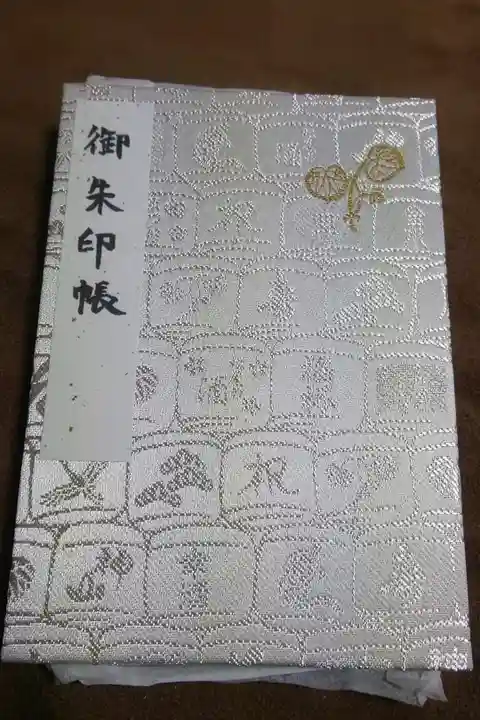 御朱印帳
祝